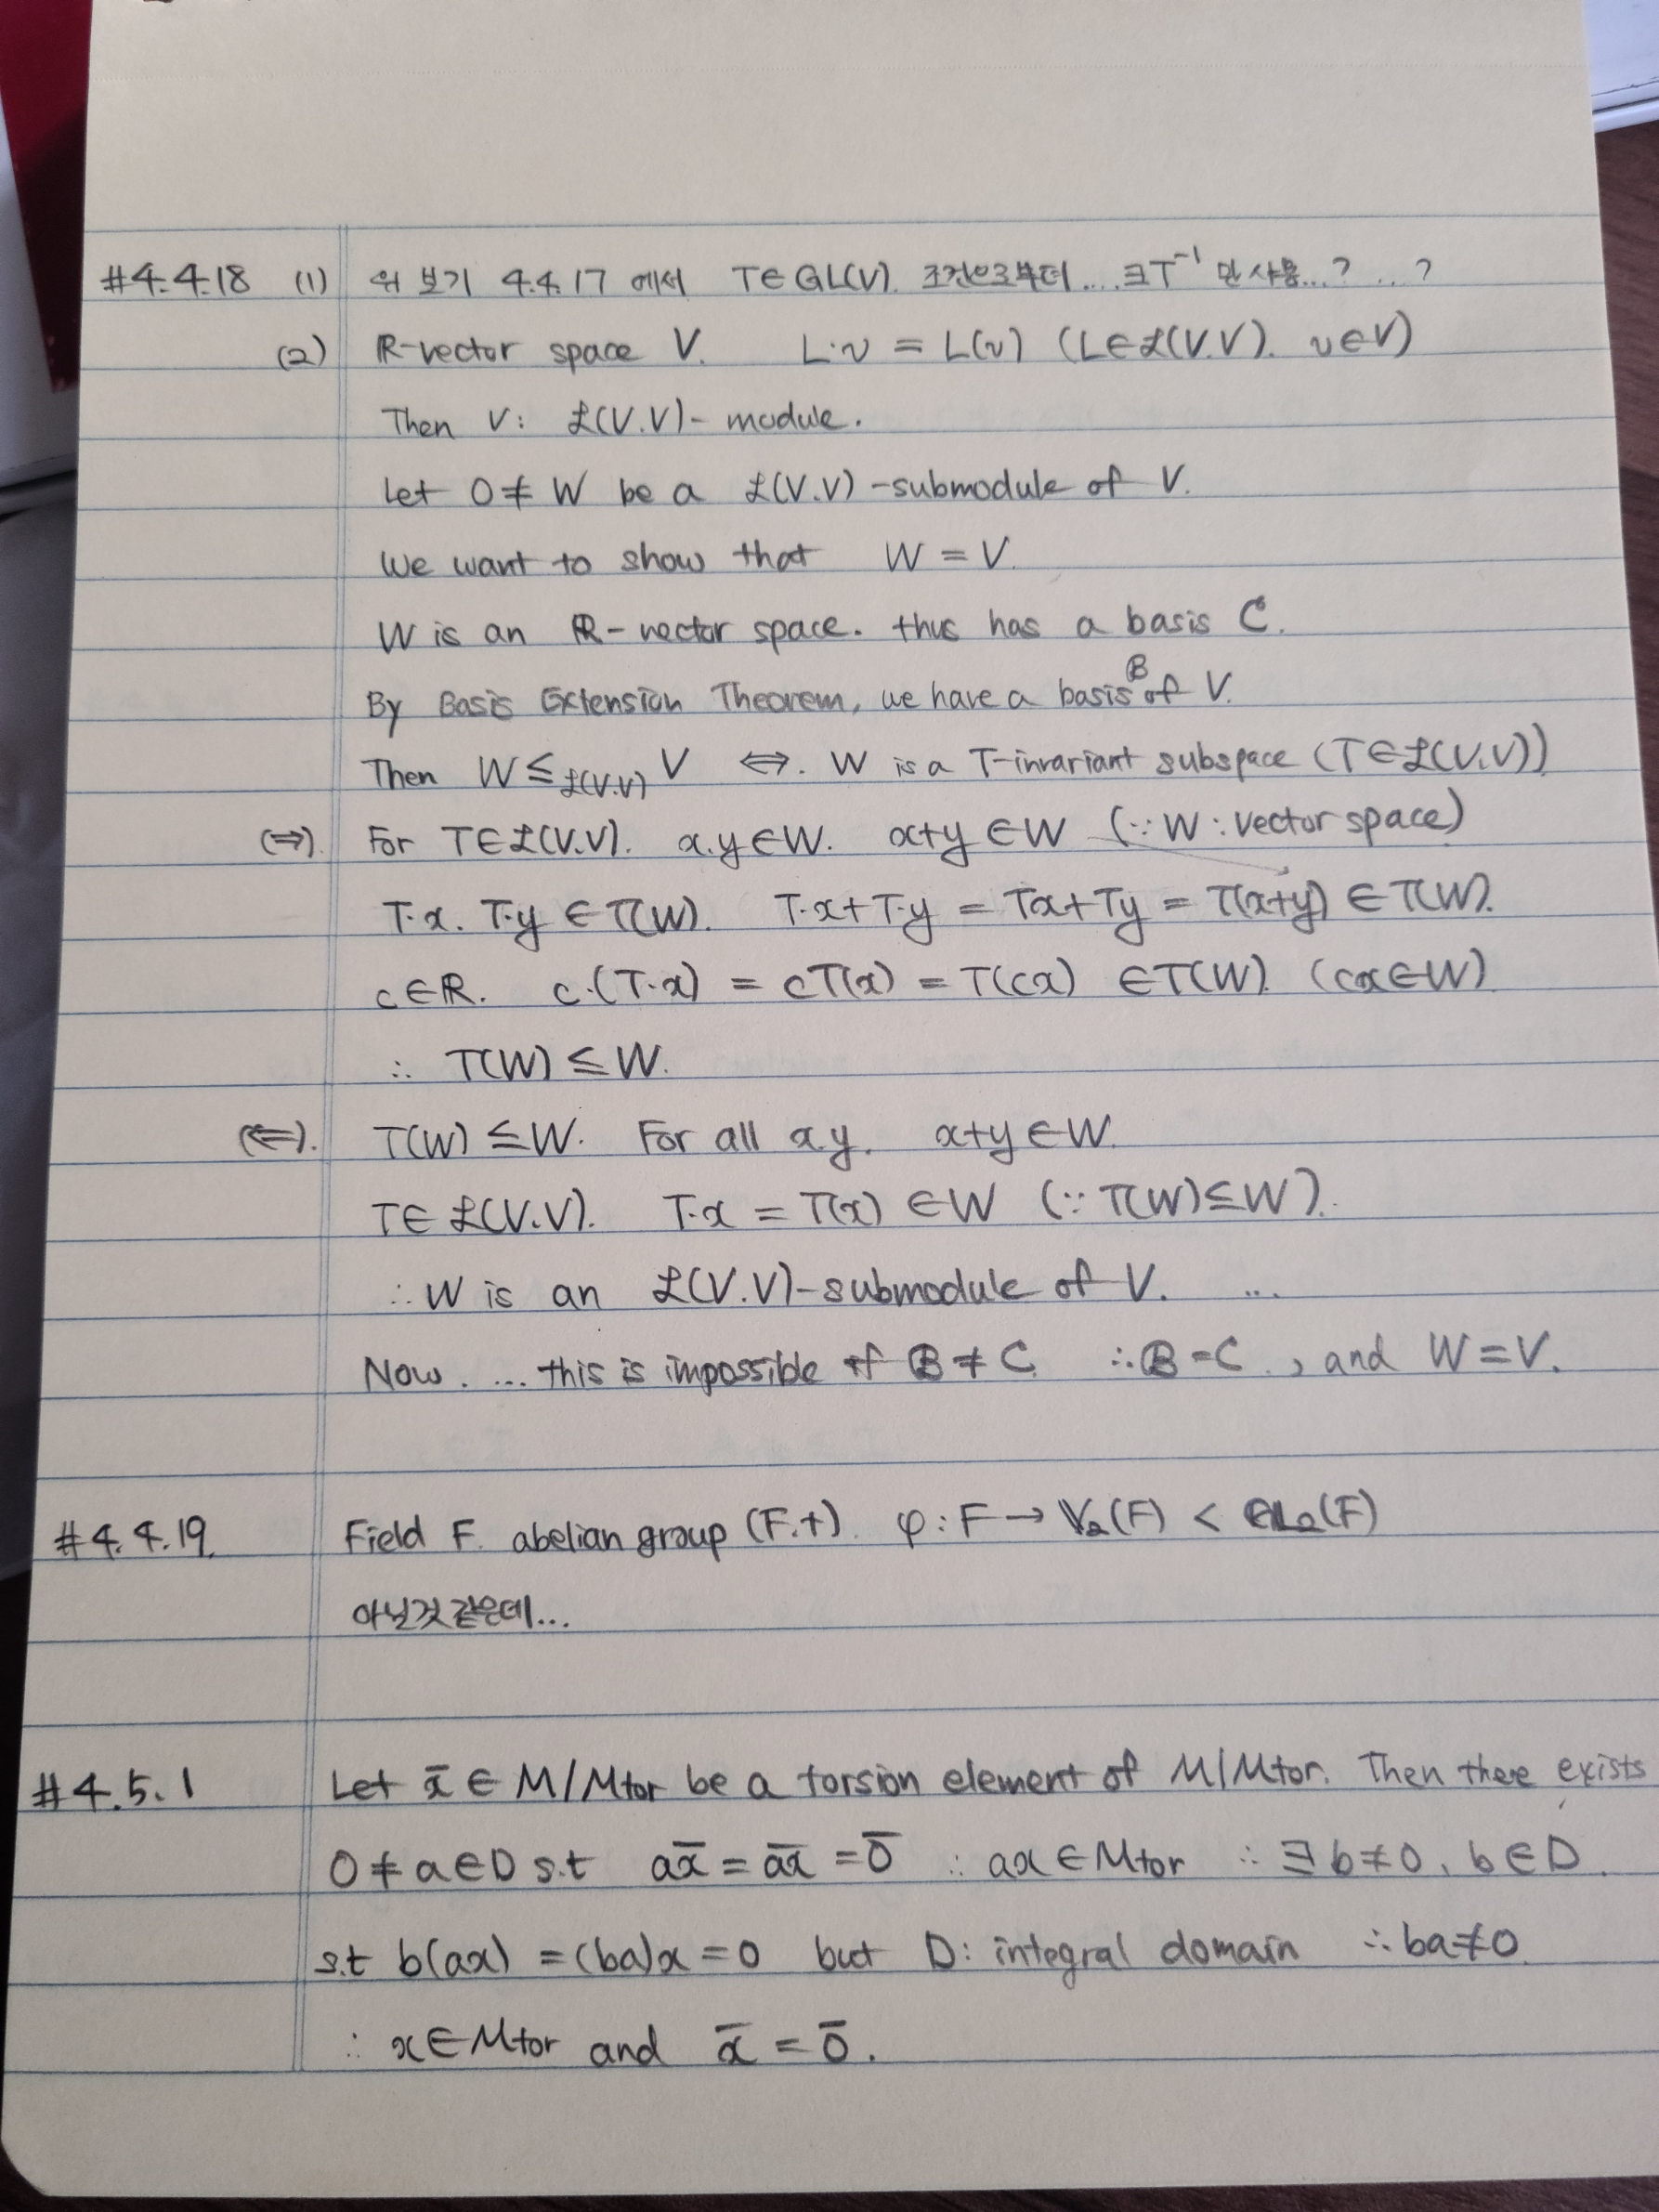 #4.4.18 (1) 위 보기 4.4.17 에서 T∈GL(V). 조건으로부터....∃T⁻¹ 만 사용...? ...?
(2) R-vector space V. L·v = L(v) (L∈𝓛(V.V). v∈V)
Then V: 𝓛(V.V)-module.
Let 0≠W be a 𝓛(V.V)-submodule of V.
We want to show that W = V.
W is an R-vector space. thus has a basis C.
By Basis Extension Theorem, we have a basis B of V.
Then W ≤𝓛(V.V) V ⇔. W is a T-invariant subspace (T∈𝓛(V.V))
(⇒). For T∈𝓛(V.V). x.y∈W. x+y∈W (∵W: vector space)
T·x. T·y ∈T(W). T·x+T·y = Tx+Ty = T(x+y) ∈T(W).
c∈R. c·(T·x) = cT(x) = T(cx) ∈T(W). (cx∈W)
∴ T(W) ≤ W.
(⇐). T(W) ≤W. For all x.y. x+y∈W.
T∈𝓛(V.V). T·x = T(x) ∈W (∵T(W)≤W).
∴W is an 𝓛(V.V)-submodule of V. ...
Now. ... this is impossible if B≠C. ∴B=C., and W=V.
#4.4.19. Field F. abelian group (F.+). φ:F→V₂(F) < GL₂(F)
아닐것 같은데...
#4.5.1 Let x̄∈M/Mtor be a torsion element of M/Mtor. Then there exists
0≠a∈D s.t ax̄ = a̅x̅ = 0̄ ∴ ax∈Mtor ∴ ∃b≠0. b∈D.
s.t b(ax) = (ba)x = 0 but D: integral domain ∴ba≠0.
∴ x∈Mtor and x̄ = 0̄.